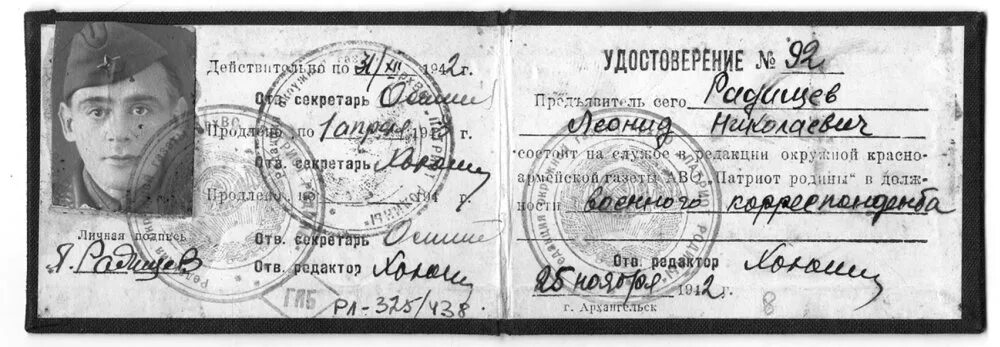 Действительно по 31/XII 1942 г.
Отв. секретарь
Продлено по 1 апреля 194 г.
Отв. секретарь
Продлено по 194 г.
Личная подпись
Отв. секретарь
Радищев
Отв. редактор
ГЛБ
РЛ-325/438
УДОСТОВЕРЕНИЕ № 92
Предъявитель сего Радищев
Леонид Николаевич
состоит на службе в редакции окружной красно-
армейской газеты АВО „Патриот родины" в долж-
ности военного корреспондента
Отв. редактор
25 ноября 1942 г.
г. Архангельск
8